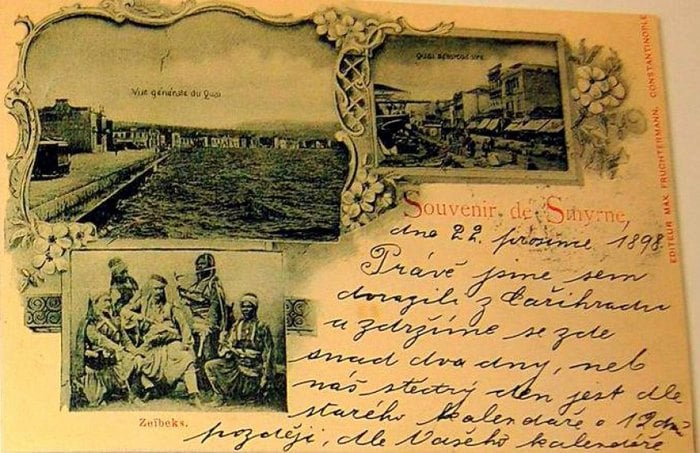 Vue générale du Quai
Quai débarcadère
EDITEUR MAX FRUCHTERMANN, CONSTANTINOPLE
Souvenir de Smyrne,
dne 22. prosince 1898
Právě jsme sem
dorazili z Cařihradu
a zdržíme se zde
snad dva dny, neb
náš štědrý den jest dle
starého kalendáře o 12 dní
později, dle Vašeho kalendáře
Zeïbeks.